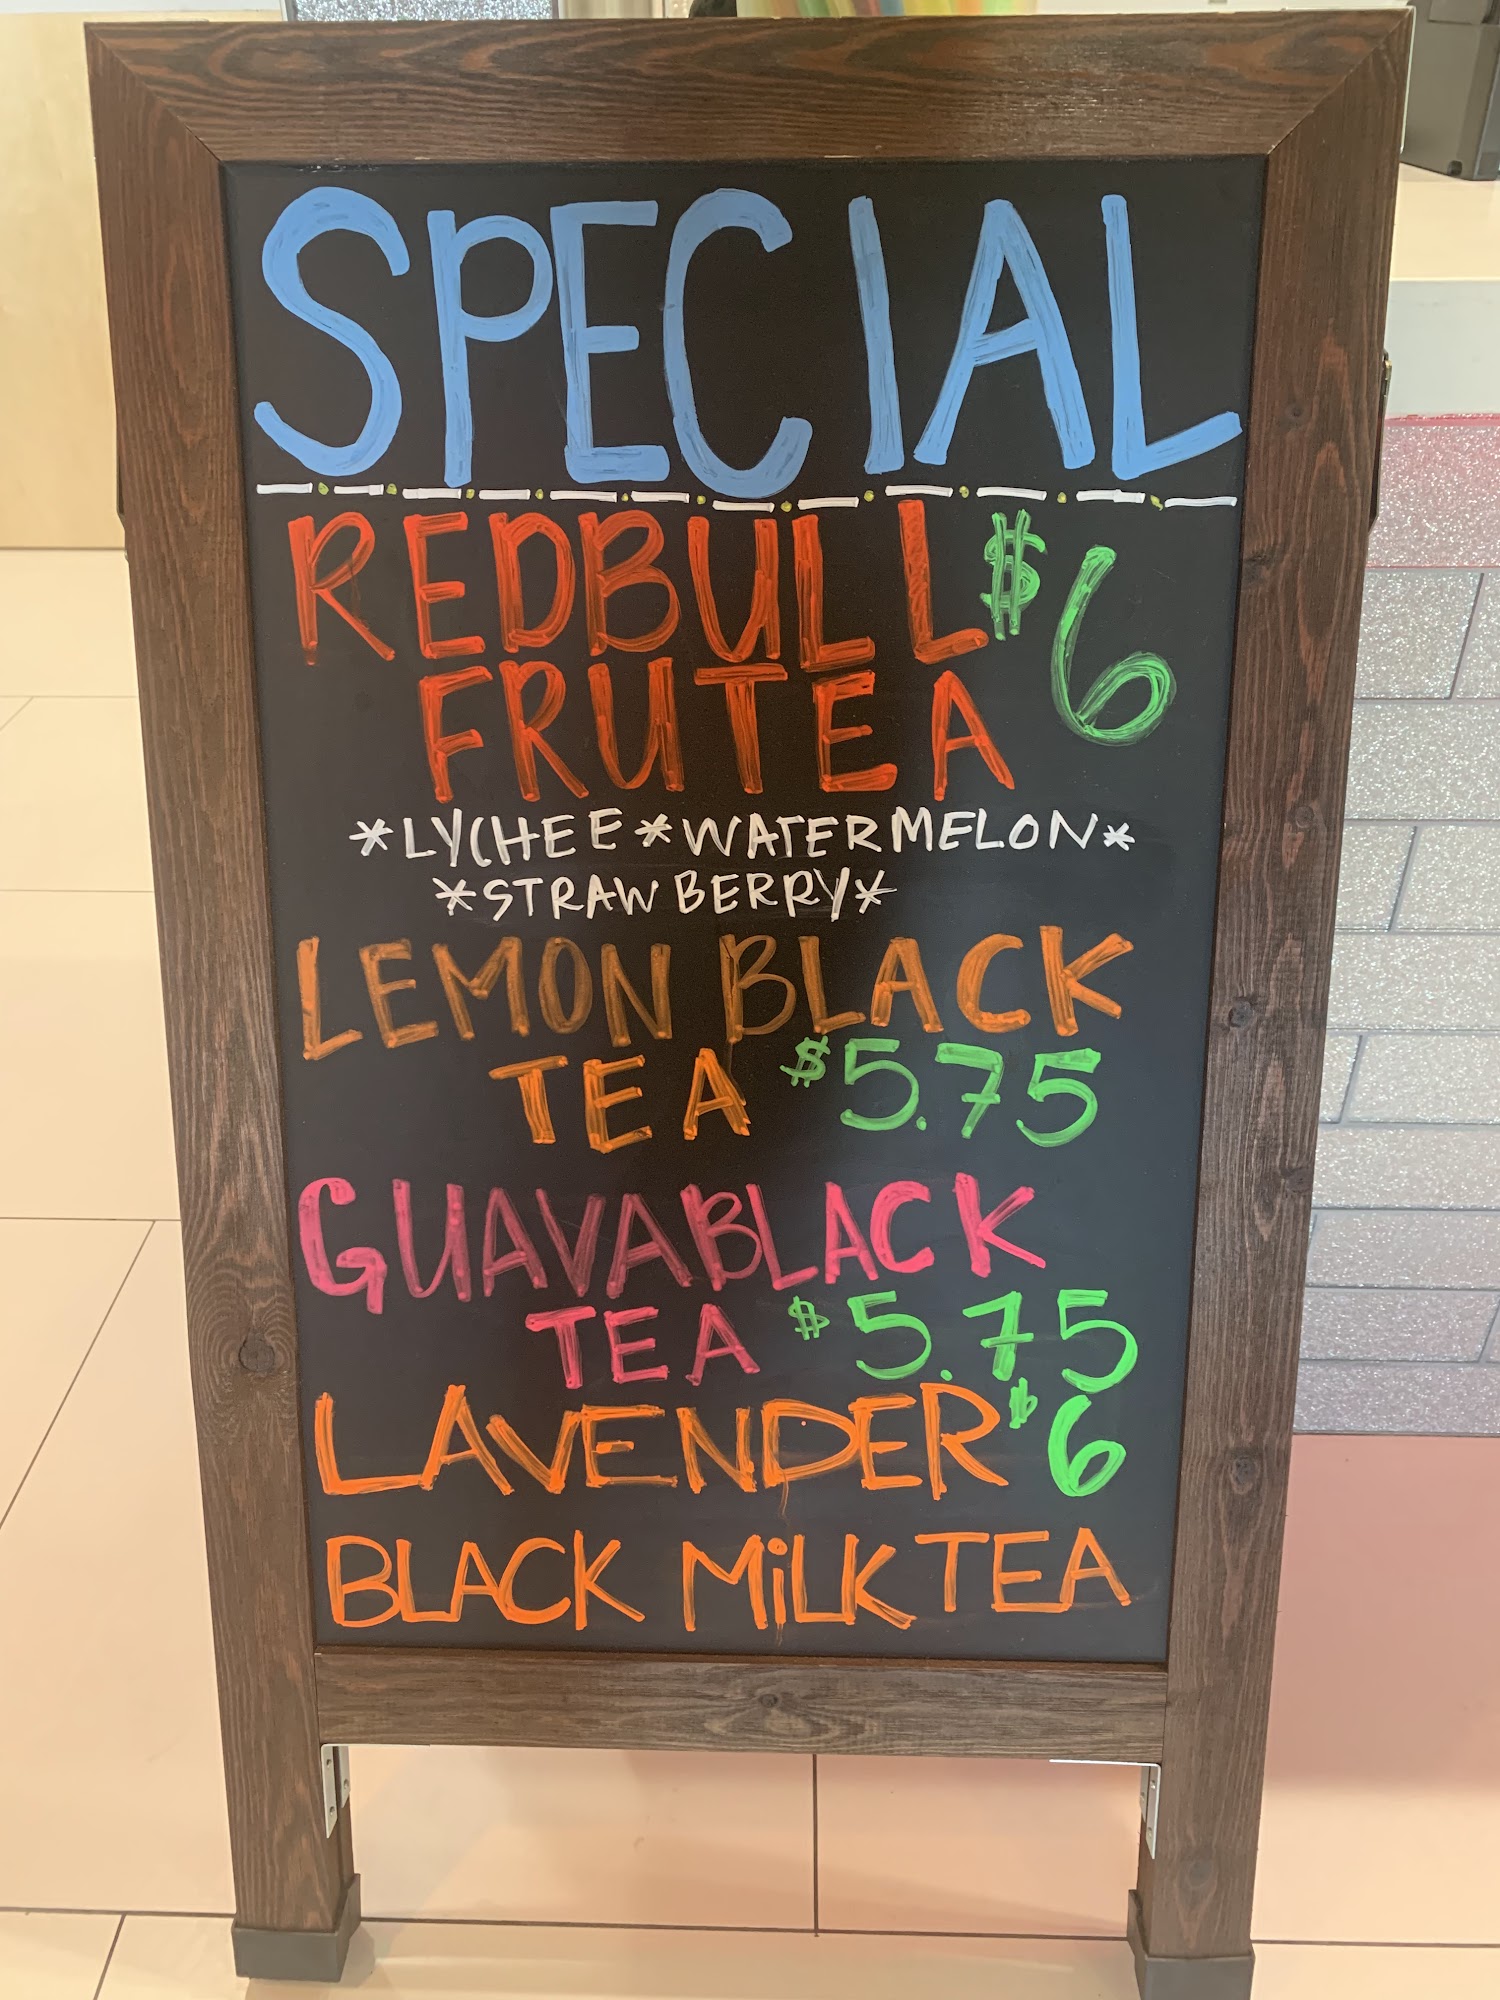 SPECIAL
REDBULL $6
FRUTEA
*LYCHEE*WATERMELON*
*STRAWBERRY*
LEMON BLACK
TEA $5.75
GUAVA BLACK
TEA $5.75
LAVENDER $6
BLACK MiLK TEA